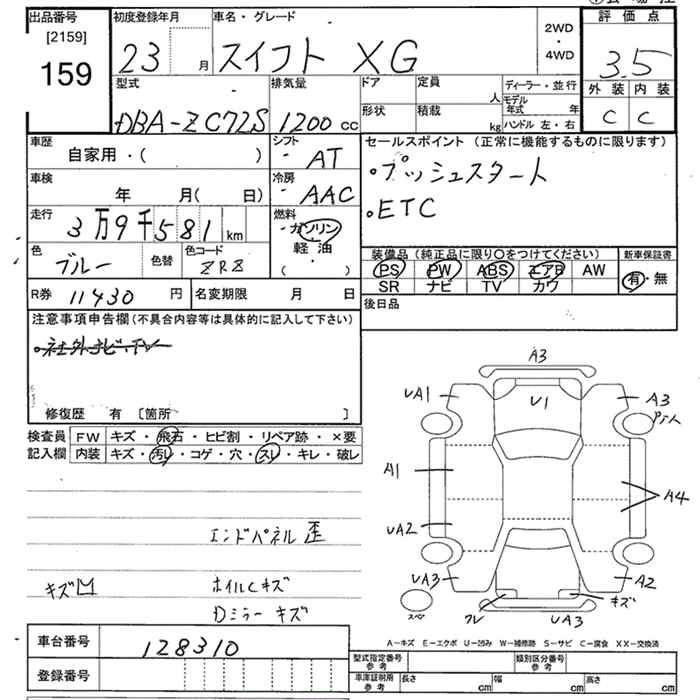 出品番号 初度登録年月 車名・グレード 2WD ・ 4WD 評価点
[2159]
159 23 月 スイフト XG 3.5
型式 排気量 ドア 定員 人 ディーラー・並行 外装 内装
形状 積載 kg モデル年式 年
DBA-ZC72S 1200 cc ハンドル 左・右 C C
車歴 自家用・( ) シフト AT セールスポイント (正常に機能するものに限ります)
車検 年 月( 日) 冷房 AAC ・プッシュスタート
走行 3万9千581km 燃料 ガソリン ・ETC
色 ブルー 色替 色コード ZRZ 軽油 ・ ( )
装備品 (純正品に限り〇をつけてください) 新車保証書
PS PW ABS エアB AW 有・無
SR ナビ TV カワ
R券 11430 円 名変期限 月 日 後日品
注意事項申告欄 (不具合内容等は具体的に記入して下さい)
・社外ナビ、TV
修復歴 有 〔箇所 〕
検査員 FW キズ・飛石・ヒビ割・リペア跡・×要
記入欄 内装 キズ・汚レ・コゲ・穴・スレ・キレ・破レ
エンドパネル歪
キズ凹 ホイルCキズ
Dミラーキズ
A3
UA1 U1 A3
A1 A4
UA2
UA3 A2
スペア ワレ UA3 キズ
車台番号 128310
登録番号
A-キズ E-エクボ U-凹み W-補修跡 S-サビ C-腐食 XX-交換済
型式指定番号 参考 類別区分番号 参考
車庫証明用 参考 長さ cm 幅 cm 高さ cm